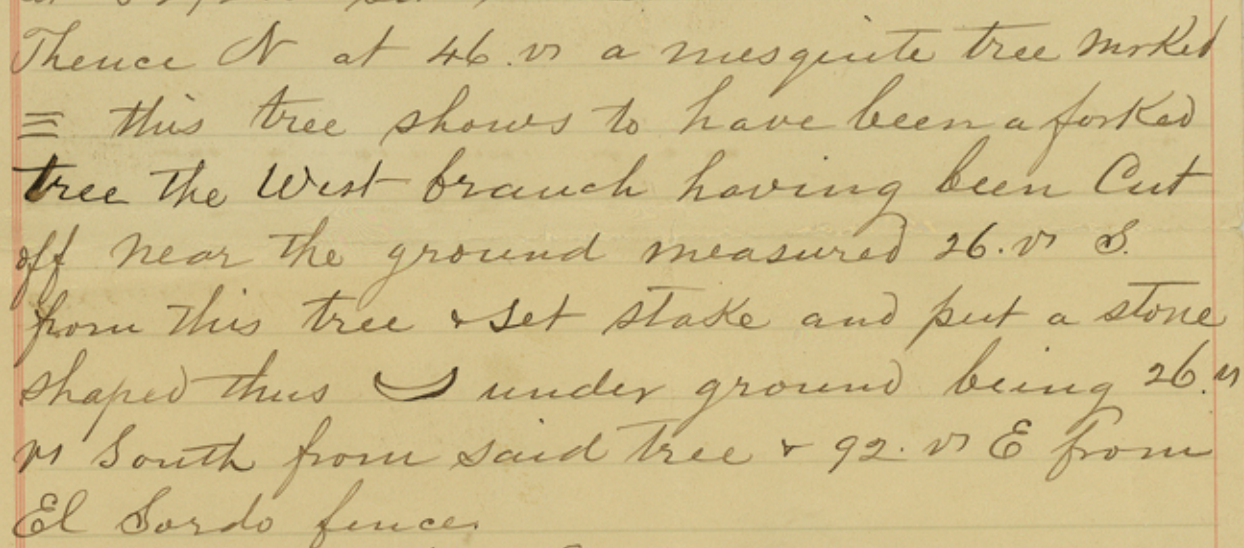 Thence N at 46. vs a mesquite tree mrked
= this tree shows to have been a forked
tree the West branch having been Cut
off near the ground measured 26. vs S.
from this tree & set stake and put a stone
shaped thus under ground being 26. vs
vs South from said tree & 92. vs E from
El Sordo fence.